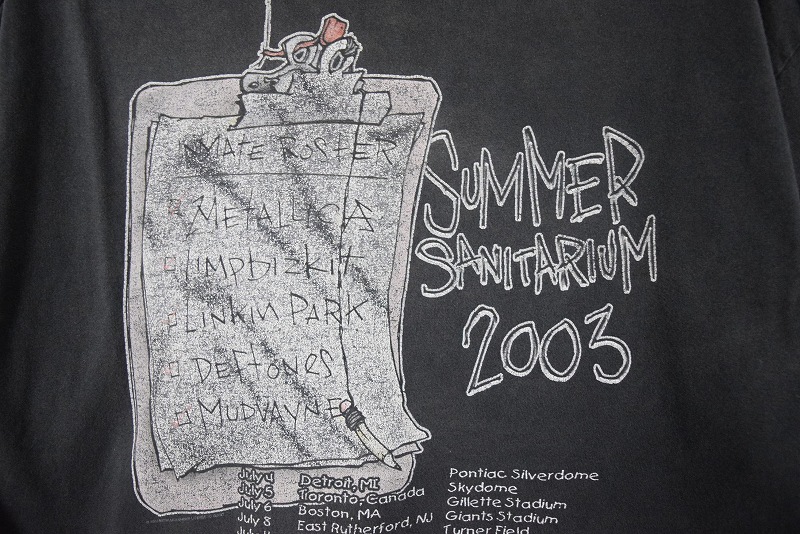 INMATE ROSTER
METALLICA
limpbizkit
LINKIN PARK
DEFTONES
MUDVAYNE
SUMMER
SANITARIUM
2003
July 4 Detroit, MI Pontiac Silverdome
July 5 Toronto, Canada Skydome
July 6 Boston, MA Gillette Stadium
July 8 East Rutherford, NJ Giants Stadium
Turner Field